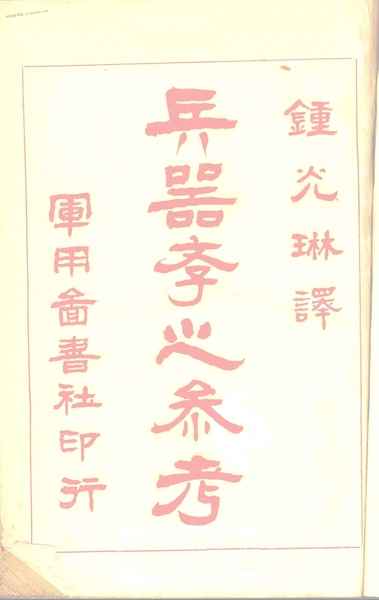 鍾光琳譯
兵器斈之参考
軍用圖書社印行